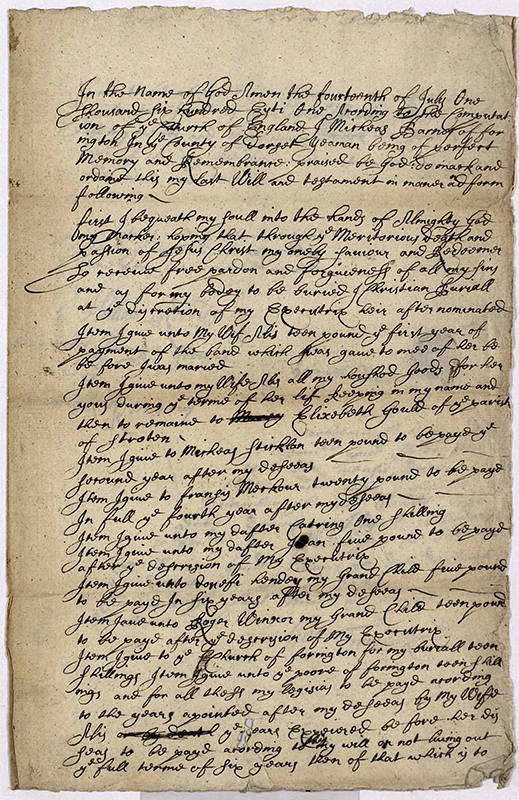 In the Name of God Amen the fourteenth of July One
thousand six hundred Eyti One Acording to the Computat
ion of ye Church of England I Mickeas Barnes of for
ington In ye County of Dorset Yeaman being of perfect
Memory and Remembrance: praised be God: do mack and
ordaine this my Last Will and testament in maner ad form
following
first I bequeath my soull into the hands of Almighty God
my Macker: hoping that through ye Meritorious death and
passion of Jesus Christ my onely saviour and Redeemer
To receive free pardon and forguieness of all my sins
and as for my bodey to be buried I Christian Buriall
at ye discretion of my Executrix heir after nominated
Item I give unto My Wif Alis teen pound ye first year of
payment of the band which was gave to mee of her be
be fore I was maried
Item I give unto my Wife Alis all my houshod Goods for her
yous during ye terme of her lif keeping in my name and
then to remaine to Elixebeth Gould of ye parish
of Stroten
Item I give to Mickeas Sticklan teen pound to be payd ye
second year after my deseeas
Item I give to francis Meckour twenty pound to be payd
In full ye fourth year after my deseeas
Item I give unto my dafter Catring One shilling
Item I give unto my dafter Joan five pound to be payd
after ye descresion of My Executrix
Item I give unto kendey my Grand Child five pound
to be payd In six years after my deseeas
Item I ave unto Roger Winsor my Grand Child teen pound
to be payd after ye descresion of My Executrix
Item I give to ye Church of forington for my buriall teen
shillings Item I give unto ye poore of forington teen shill
ings and for all thess my legisias to be payd acording
to the years apointed after my deseeas by My Wife
Alis ye years Expiered be fore her dis
seas to be payd acording to my will or not living out
ye full terme of six years then of that which is to